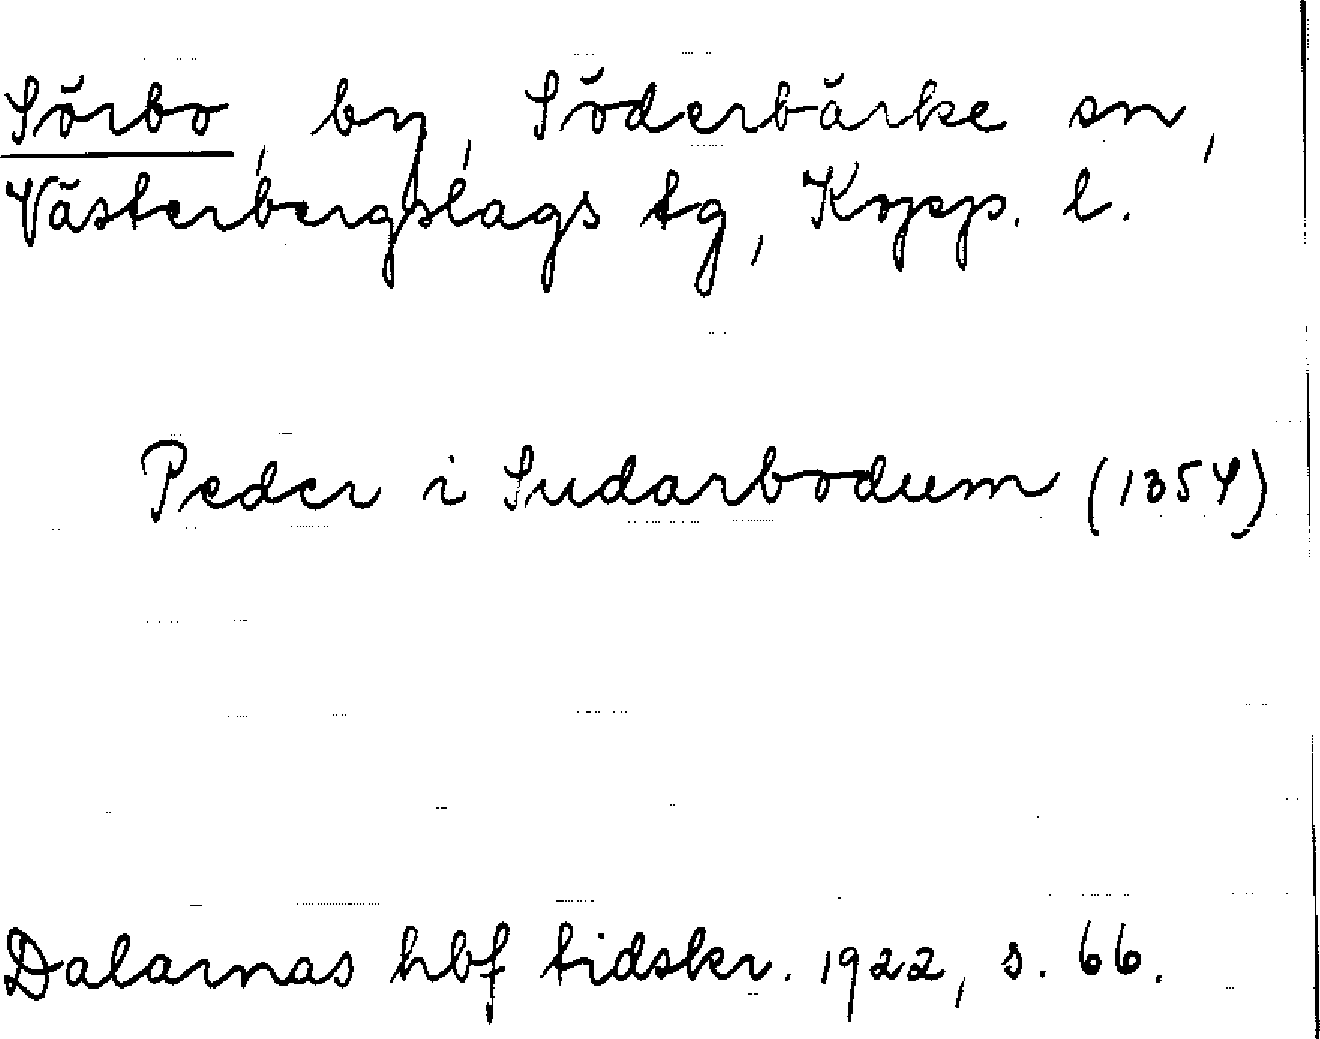 Sörbo, by, Söderbärke sn,
Västerbergslags tg, Kopp. l.
Peder i Sudarbodum (1354)
Dalarnas hbf tidskr. 1922, s. 66.